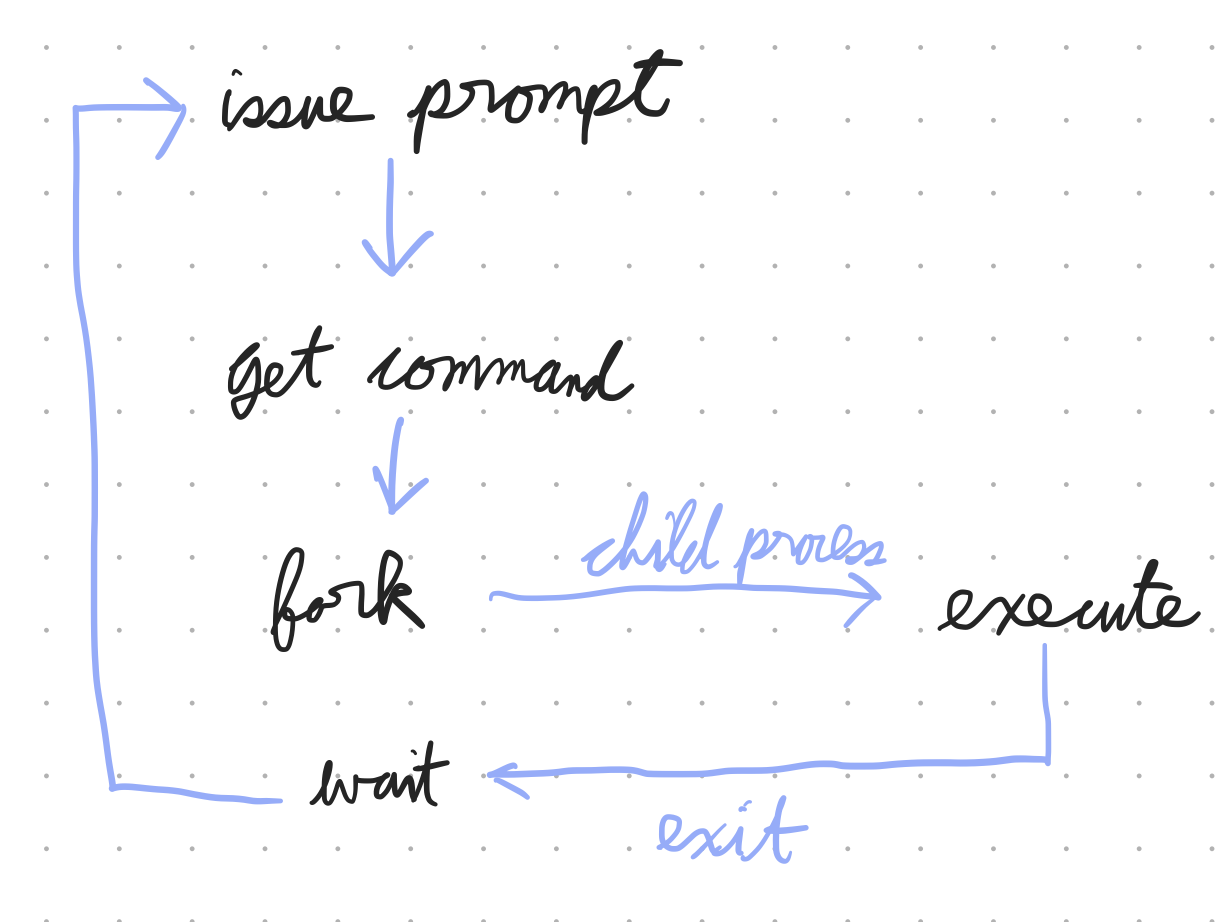 issue prompt
get command
child process
fork
execute
wait
exit